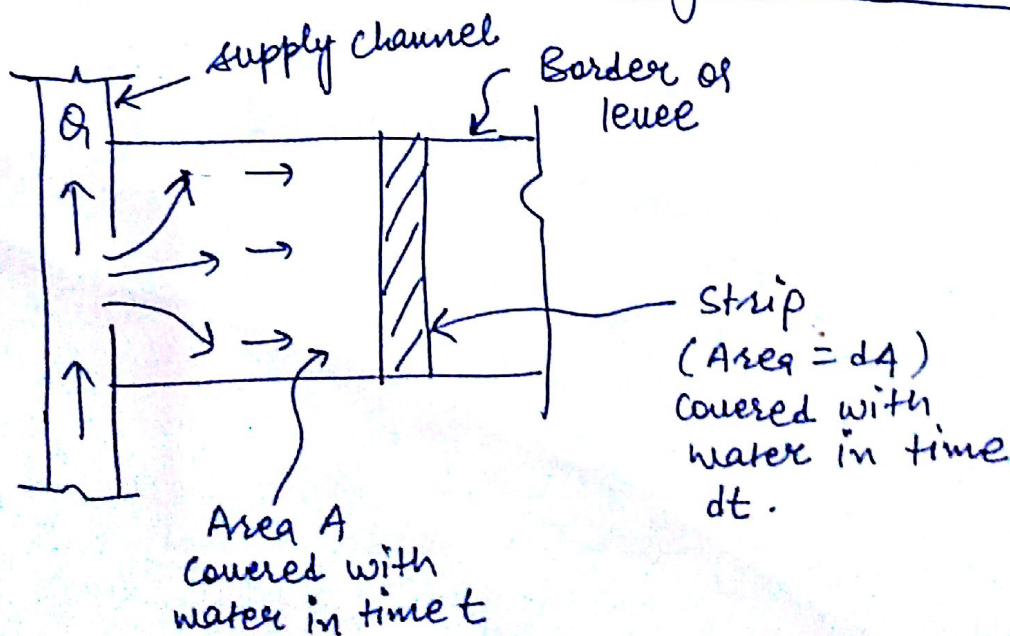 supply channel
Border or
levee
Q
Strip
(Area = dA)
covered with
water in time
dt.
Area A
covered with
water in time t